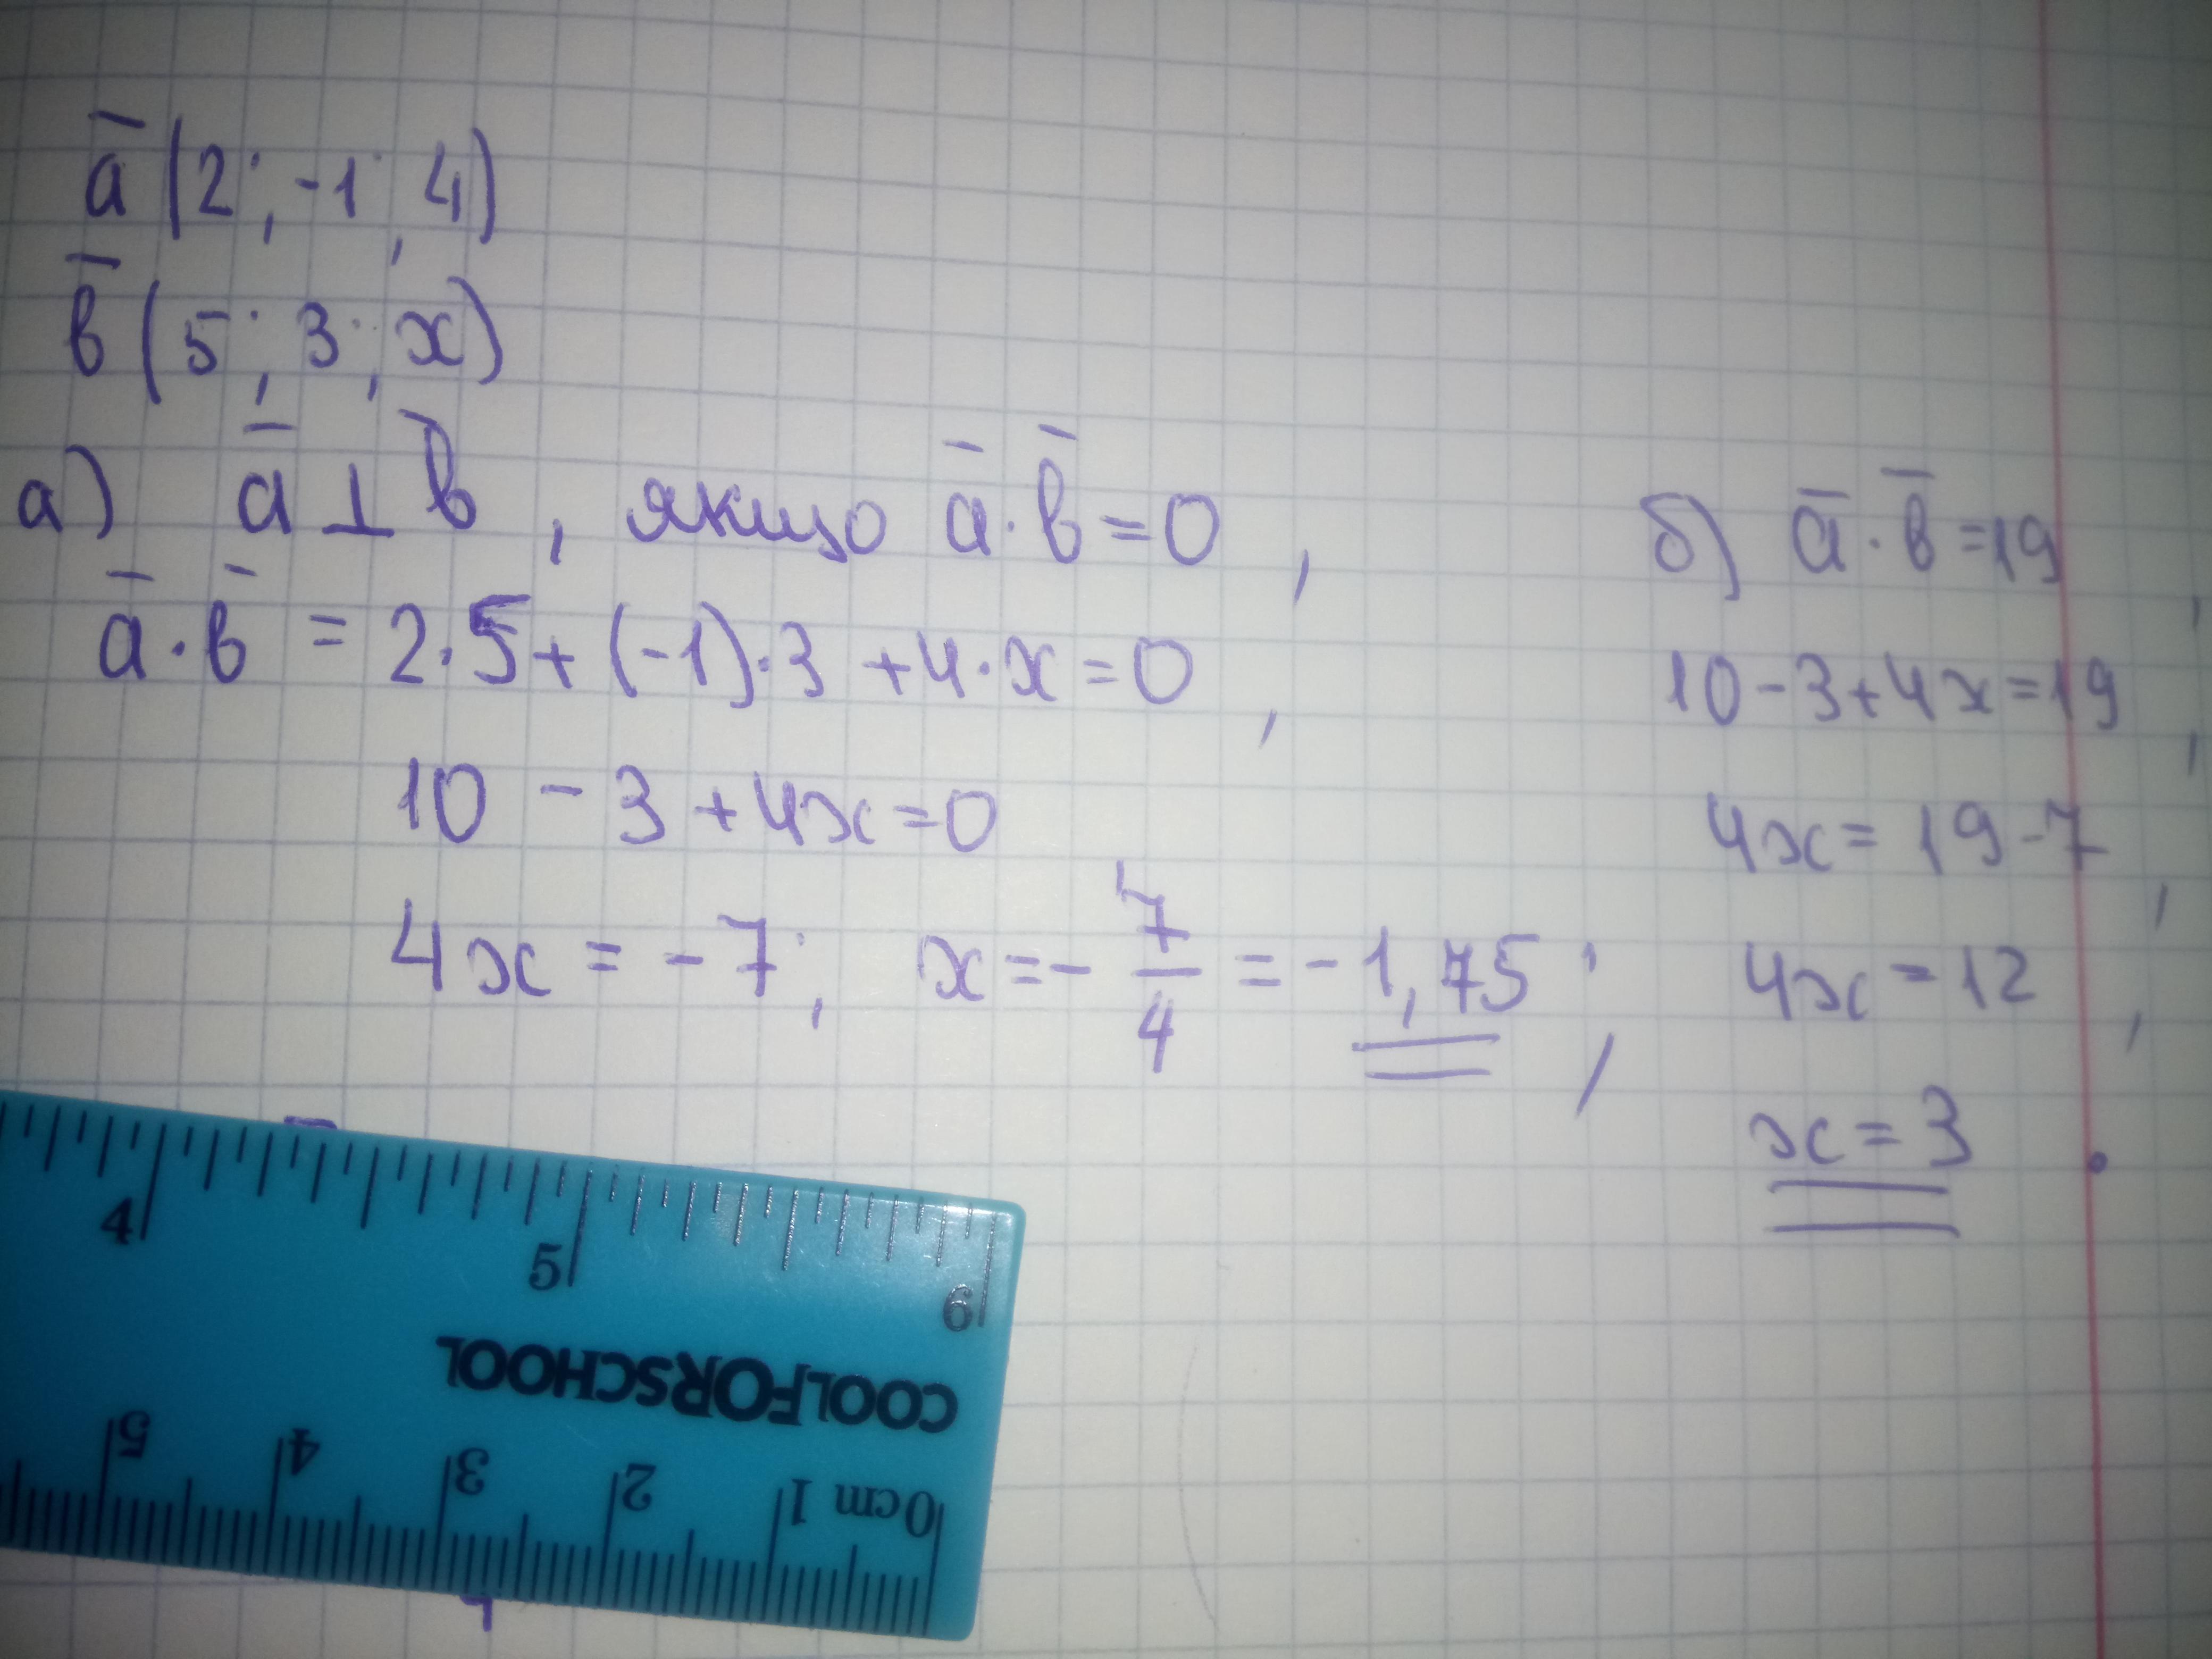 ā (2; -1; 4)
в̄ (5; 3; x)
а) ā ⊥ в̄, якщо ā · в̄ = 0,
ā · в̄ = 2·5 + (-1)·3 + 4·x = 0,
10 - 3 + 4x = 0
4x = -7; x = - 7/4 = -1,75;
б) ā · в̄ = 19,
10 - 3 + 4x = 19,
4x = 19 - 7,
4x = 12,
x = 3.
4 5 6
COOLFORSCHOOL
0cm 1 2 3 4 5